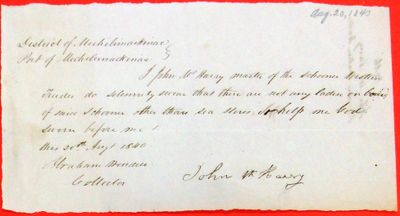 Aug. 20, 1840
District of Michilimackinac
Port of Michilimackinac
I John Mc Harry master of the schooner Western
Trader do solemnly swear that there are not any laden on board
of said schooner other than sea stores So help me God
Sworn before me
this 20th Augt 1840
Abraham Wendell
Collector
John Mc Harry